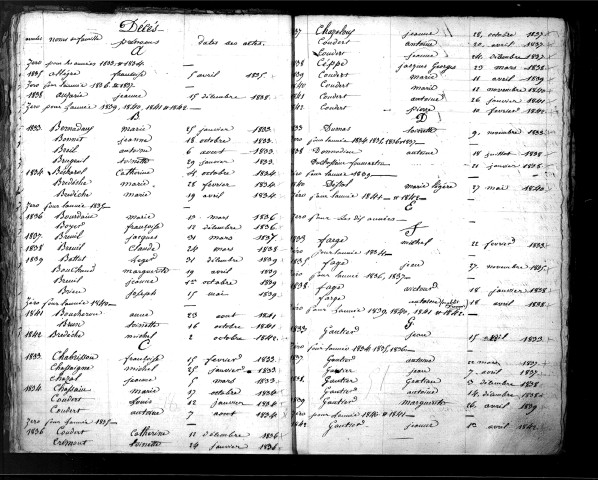 Décès
années noms de famille prénoms dates des actes.
A
Zero pour les années 1833 & 1834.
1835 françoise 5 avril 1835.
Zero pour l'année 1836 & 1837.
1838 jeanne 15 décembre 1838.
Zero pour l'année 1839, 1840, 1841 & 1842.
B
1833. marie 15 janvier 1833.
Bonnet jeanne 18 octobre 1833.
Breil antoine 6 aout 1833.
Brugeail toinette 29 janvier 1833.
1834 Catherine 4 octobre 1834
Bredèche marie 28 février 1834
Bredèche marie 19 avril 1834
Zero pour l'année 1835.
1836 Bourdain marie 13 mars 1836
Boyer françoise 12 décembre 1836
1837 Breuil jacques 31 mars 1837
1838 Breuil Claude 24 mars 1838
1839 Battut Leger 31 décembre 1839
Bouchaud marguerite 19 avril 1839
Breuil jeanne 1er octobre 1839
joseph 15 mai 1839
Zero pour l'année 1840.
1841 Boucheron anne 23 aout 1841
Brun toinette 16 octobre 1841
1842 Bredèche michel 2 octobre 1842
C
1833 Chabrissou françoise 15 février 1833.
Chassaigne michel 25 janvier 1833.
Chazal jeanne 5 mars 1833.
1834 Chassain marie 17 octobre 1834
Coudert Louis 12 janvier 1834
Coudert antoine 7 aout 1834
Zero pour l'année 1835.
1836 Coudert Catherine 11 décembre 1836
Cremont toinette 24 janvier 1836
37 Chapelour jeanne 18 octobre 1837
Coudert antoine 20 avril 1837
Coudert jeanne 24 décembre 1837
38 Ceppe jacques Georges 29 mars 1838
39 Coudert marie 11 avril 1839
40 Coudert marie 11 novembre 1840
41 Coudert antoine 26 janvier 1841
42 Coudert pierre 10 février 1842
D
33 Dumas toinette 9 novembre 1833
Zero pour l'année 1834, 1835, 1836 & 1837
38 antoine 18 juillet 1838
21 janvier 1838
Zero pour l'année 1839
1840 marie légère 27 mai 1840
Zero pour l'année 1841 & 1842
E
Zero pour les dix années
F
1833 farge michel 22 février 1833
pour l'année 1834
1835 fage jean 27 novembre 1835
pour l'année 1836, 1837
1838 fage 18 janvier 1838
farge antoine 18 avril 1838
Zero pour l'année 1839, 1840, 1841 & 1842
G
1833 Gautier jean 15 avril 1833
pour l'année 1834, 1835, 1836
1837 Gautier antoine 22 mars 1837
Gautier jean 7 avril 1837
1838 Gautier 3 décembre 1838
Gautier antoine 14 décembre 1838
1839 Gautier marguerite 26 avril 1839
Zero pour l'année 1840 & 1841
1842 Gautier jeanne 10 avril 1842